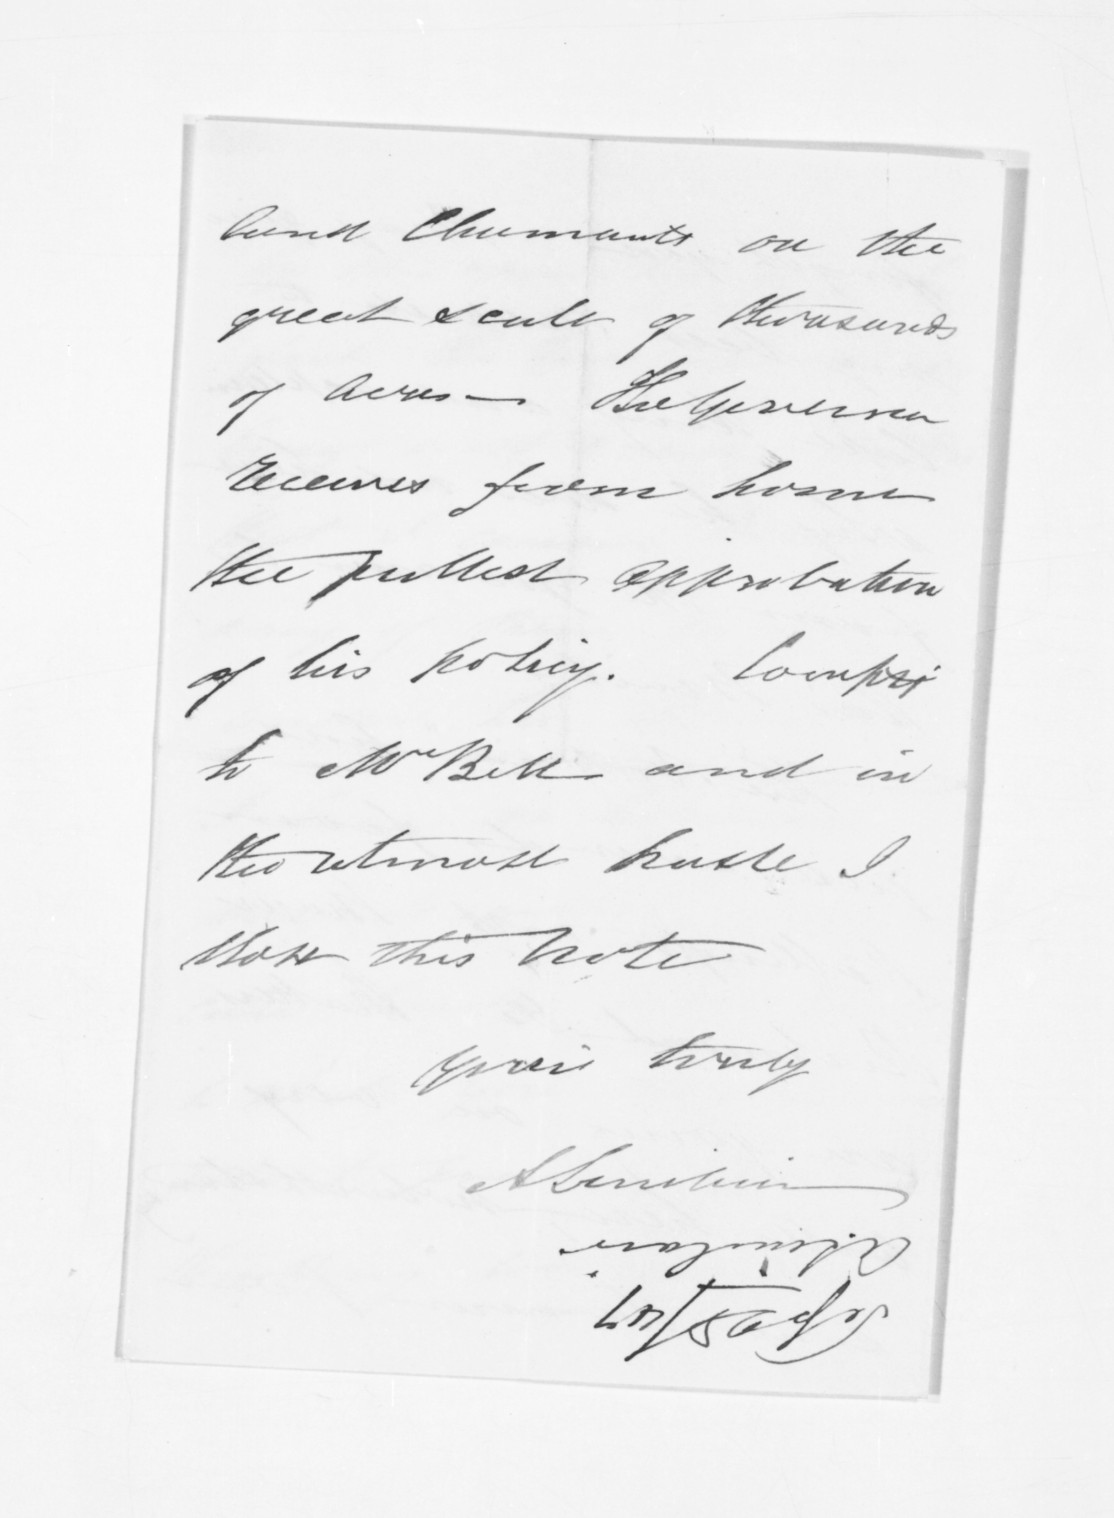 land Claimants on the
great scale of thousands
of Acres — The Governor
receives from home
the fullest approbation
of his policy. Compts
to Mr Bell and in
the utmost haste I
close this note
yours truly
A Sinclair
Sep 25/47
A. Sinclair